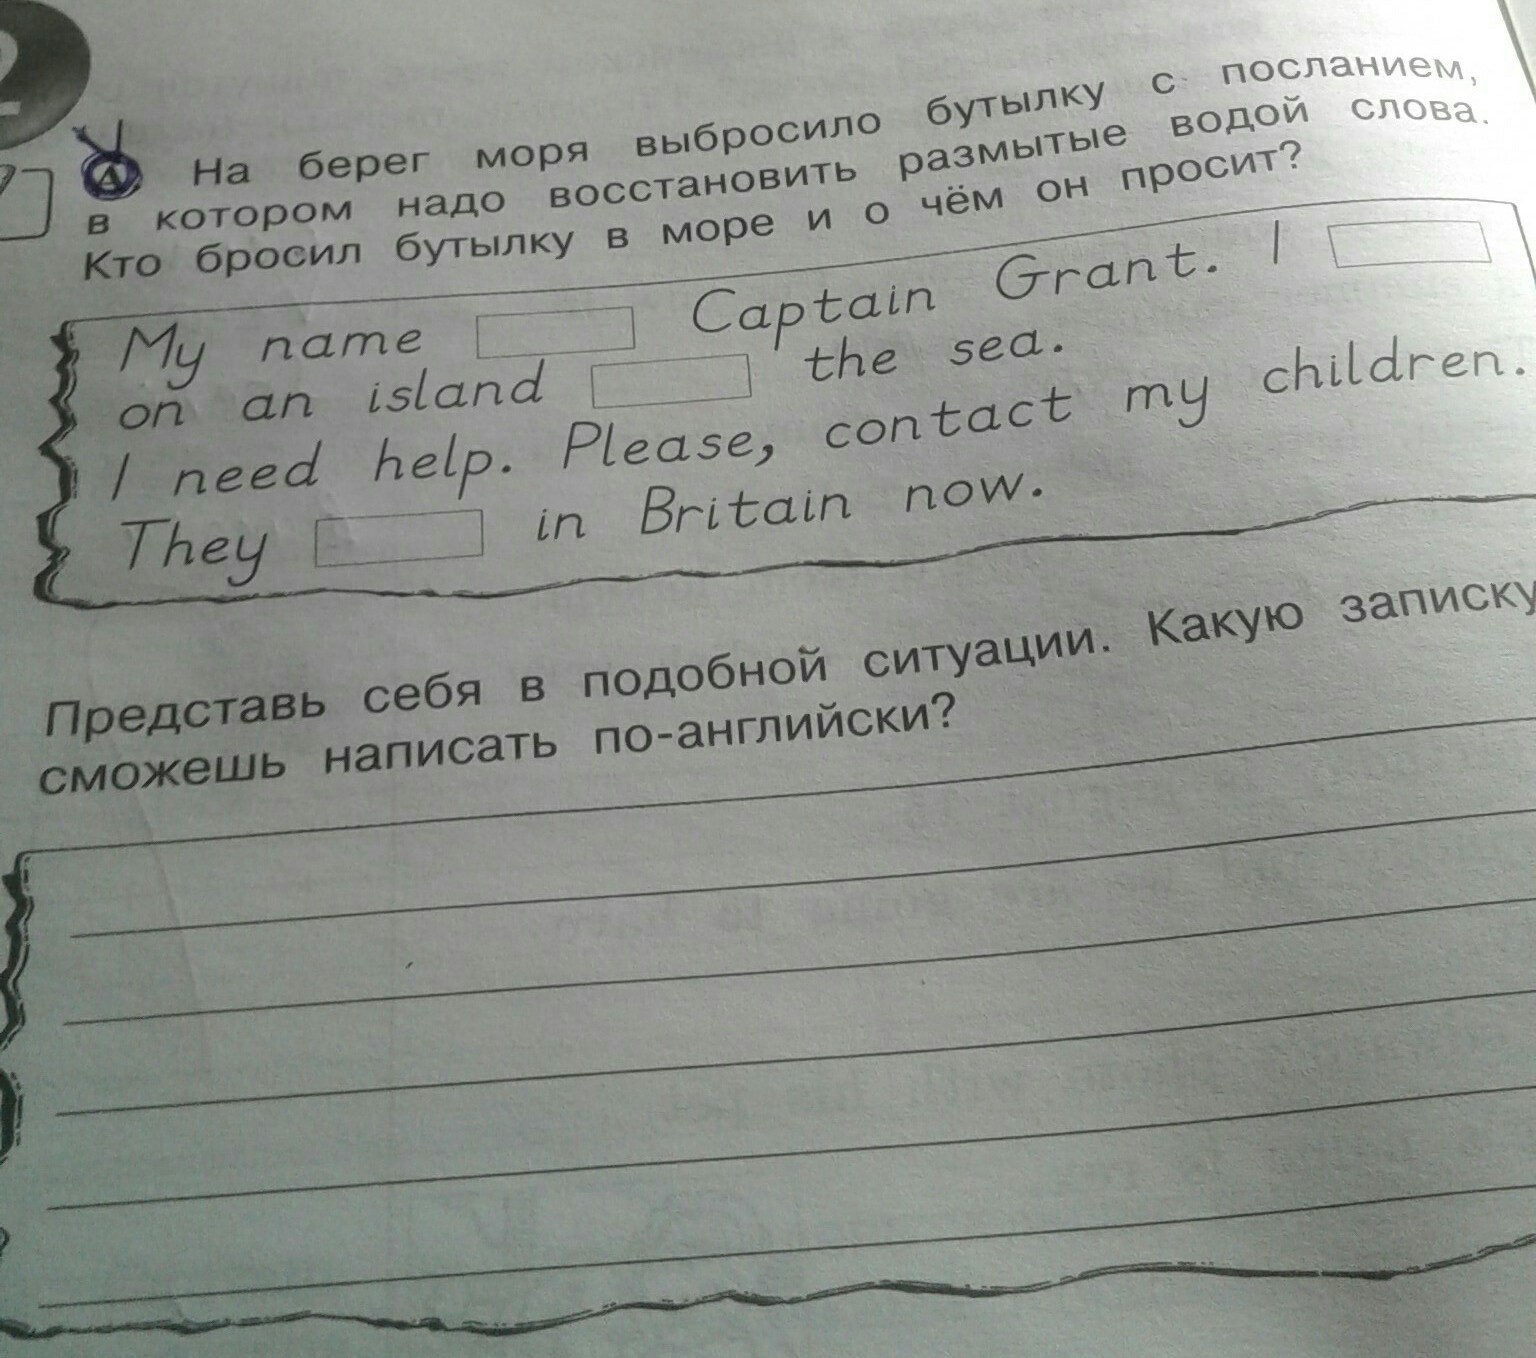 2
А На берег моря выбросило бутылку с посланием,
в котором надо восстановить размытые водой слова.
Кто бросил бутылку в море и о чём он просит?
My name Captain Grant. I
on an island the sea.
I need help. Please, contact my children.
They in Britain now.
Представь себя в подобной ситуации. Какую записку
сможешь написать по-английски?